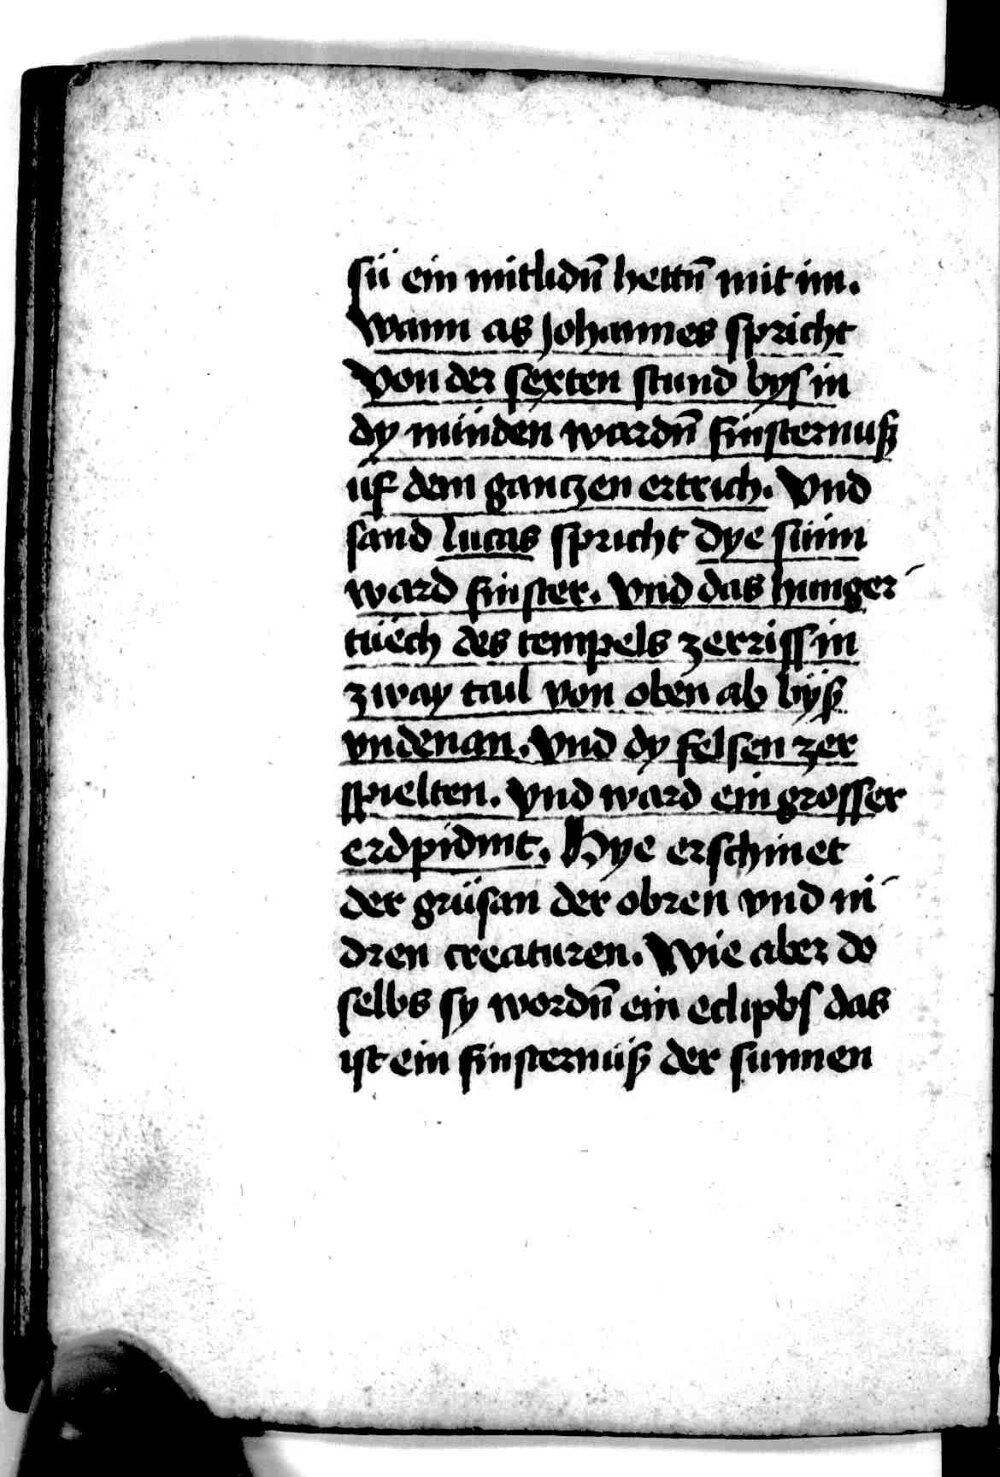 sü ein mitlidn̄ hettn̄ mit im.
Wann as Johannes spricht
Von der sexten stund bys in
dy nünden wardn̄ finsternuß
üf dem gantzen ertrich. Vnd
sand lucas spricht Dye sunn
ward finster. Vnd das hunger
tuech des tempels zerriss in
zway tail von oben ab byß
vndenan. Vnd dy felsen zer
spielten. Vnd ward ein grosser
erdpidmt. Hye erschinet
der grüsan der obren vnd ni
dren creaturen. Wie aber do
selbs sy wordn̄ ein eclipbs das
ist ein finsternüß der sunnen